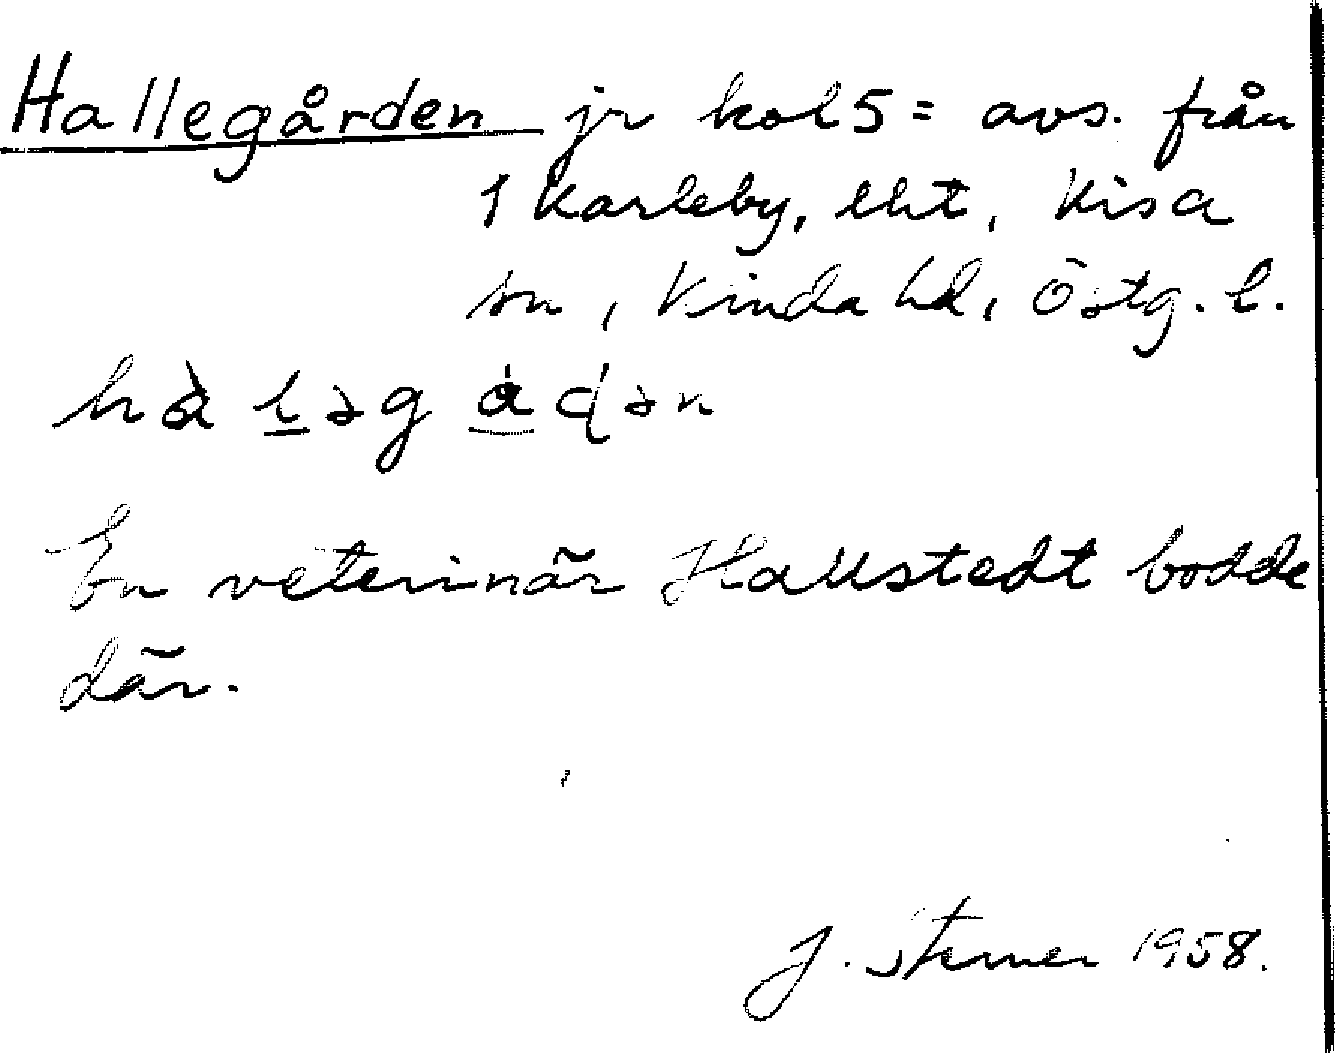 Hallegården jr kol 5 = avs. från
1 Karleby, eht, Kisa
sn, Kinda hd, Östg. l.
hàləgàdən
En veterinär Hallstedt bodde
där.
J. Sterner 1958.